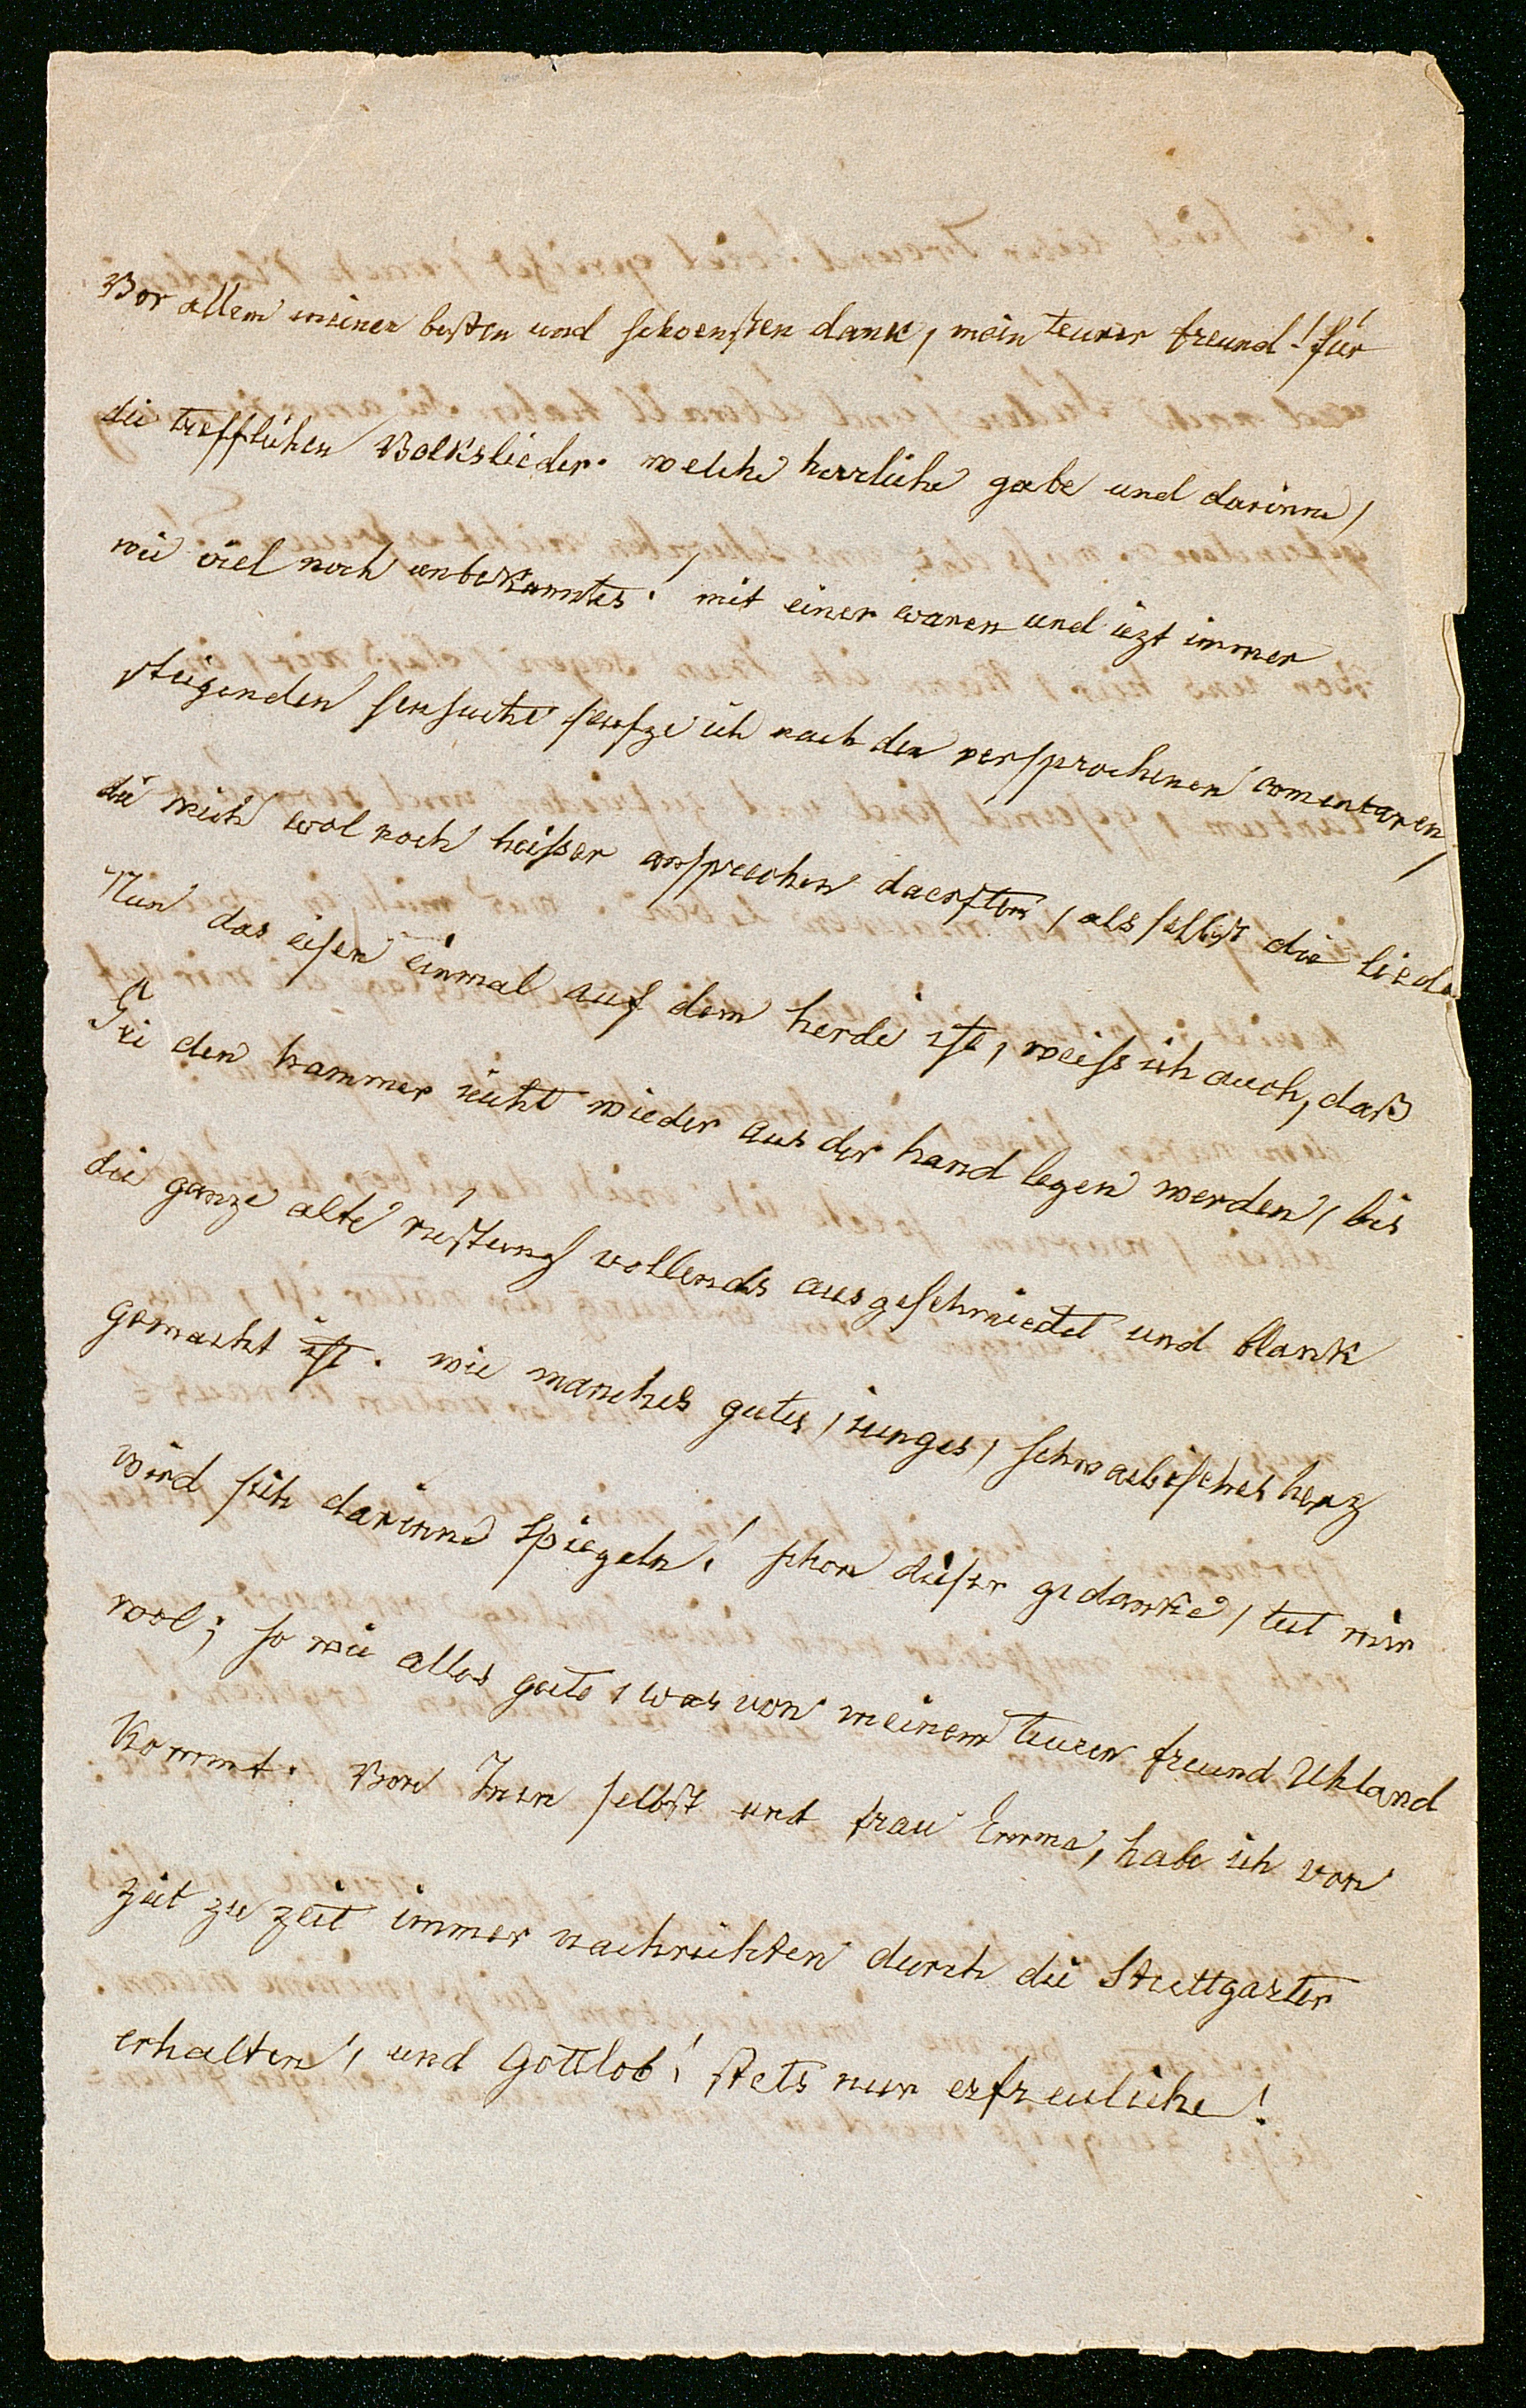 Vor allem meinen besten und schoensten dank, mein teurer freund! für
die trefflichen Volkslieder. welche herrliche gabe und darinne,
wie viel noch unbekanntes! mit einer waren und iezt immer
steigenden sensucht seufze ich nach den versprochenen comentaren,
die mich wol noch heisser ansprechen duerften, als selbst die lieder
Nun das eisen einmal auf dem herde ist, weiss ich auch, daß
Sie den hammer nicht wieder aus der hand legen werden, bis
die ganze alte rüstung vollends ausgeschmiedet und blank
gemacht ist. wie manches gutes, iunges, schwaebisches herz
wird sich darinne spiegeln! schon dieser gedanke, tut mir
wol; so wie alles gute, was von meinem teuren freund Uhland
kommt. Von Inen selbst und frau Emma, habe ich von
zeit zu zeit immer nachrichten durch die Stuttgarter
erhalten, und Gottlob! stets nur erfreuliche!